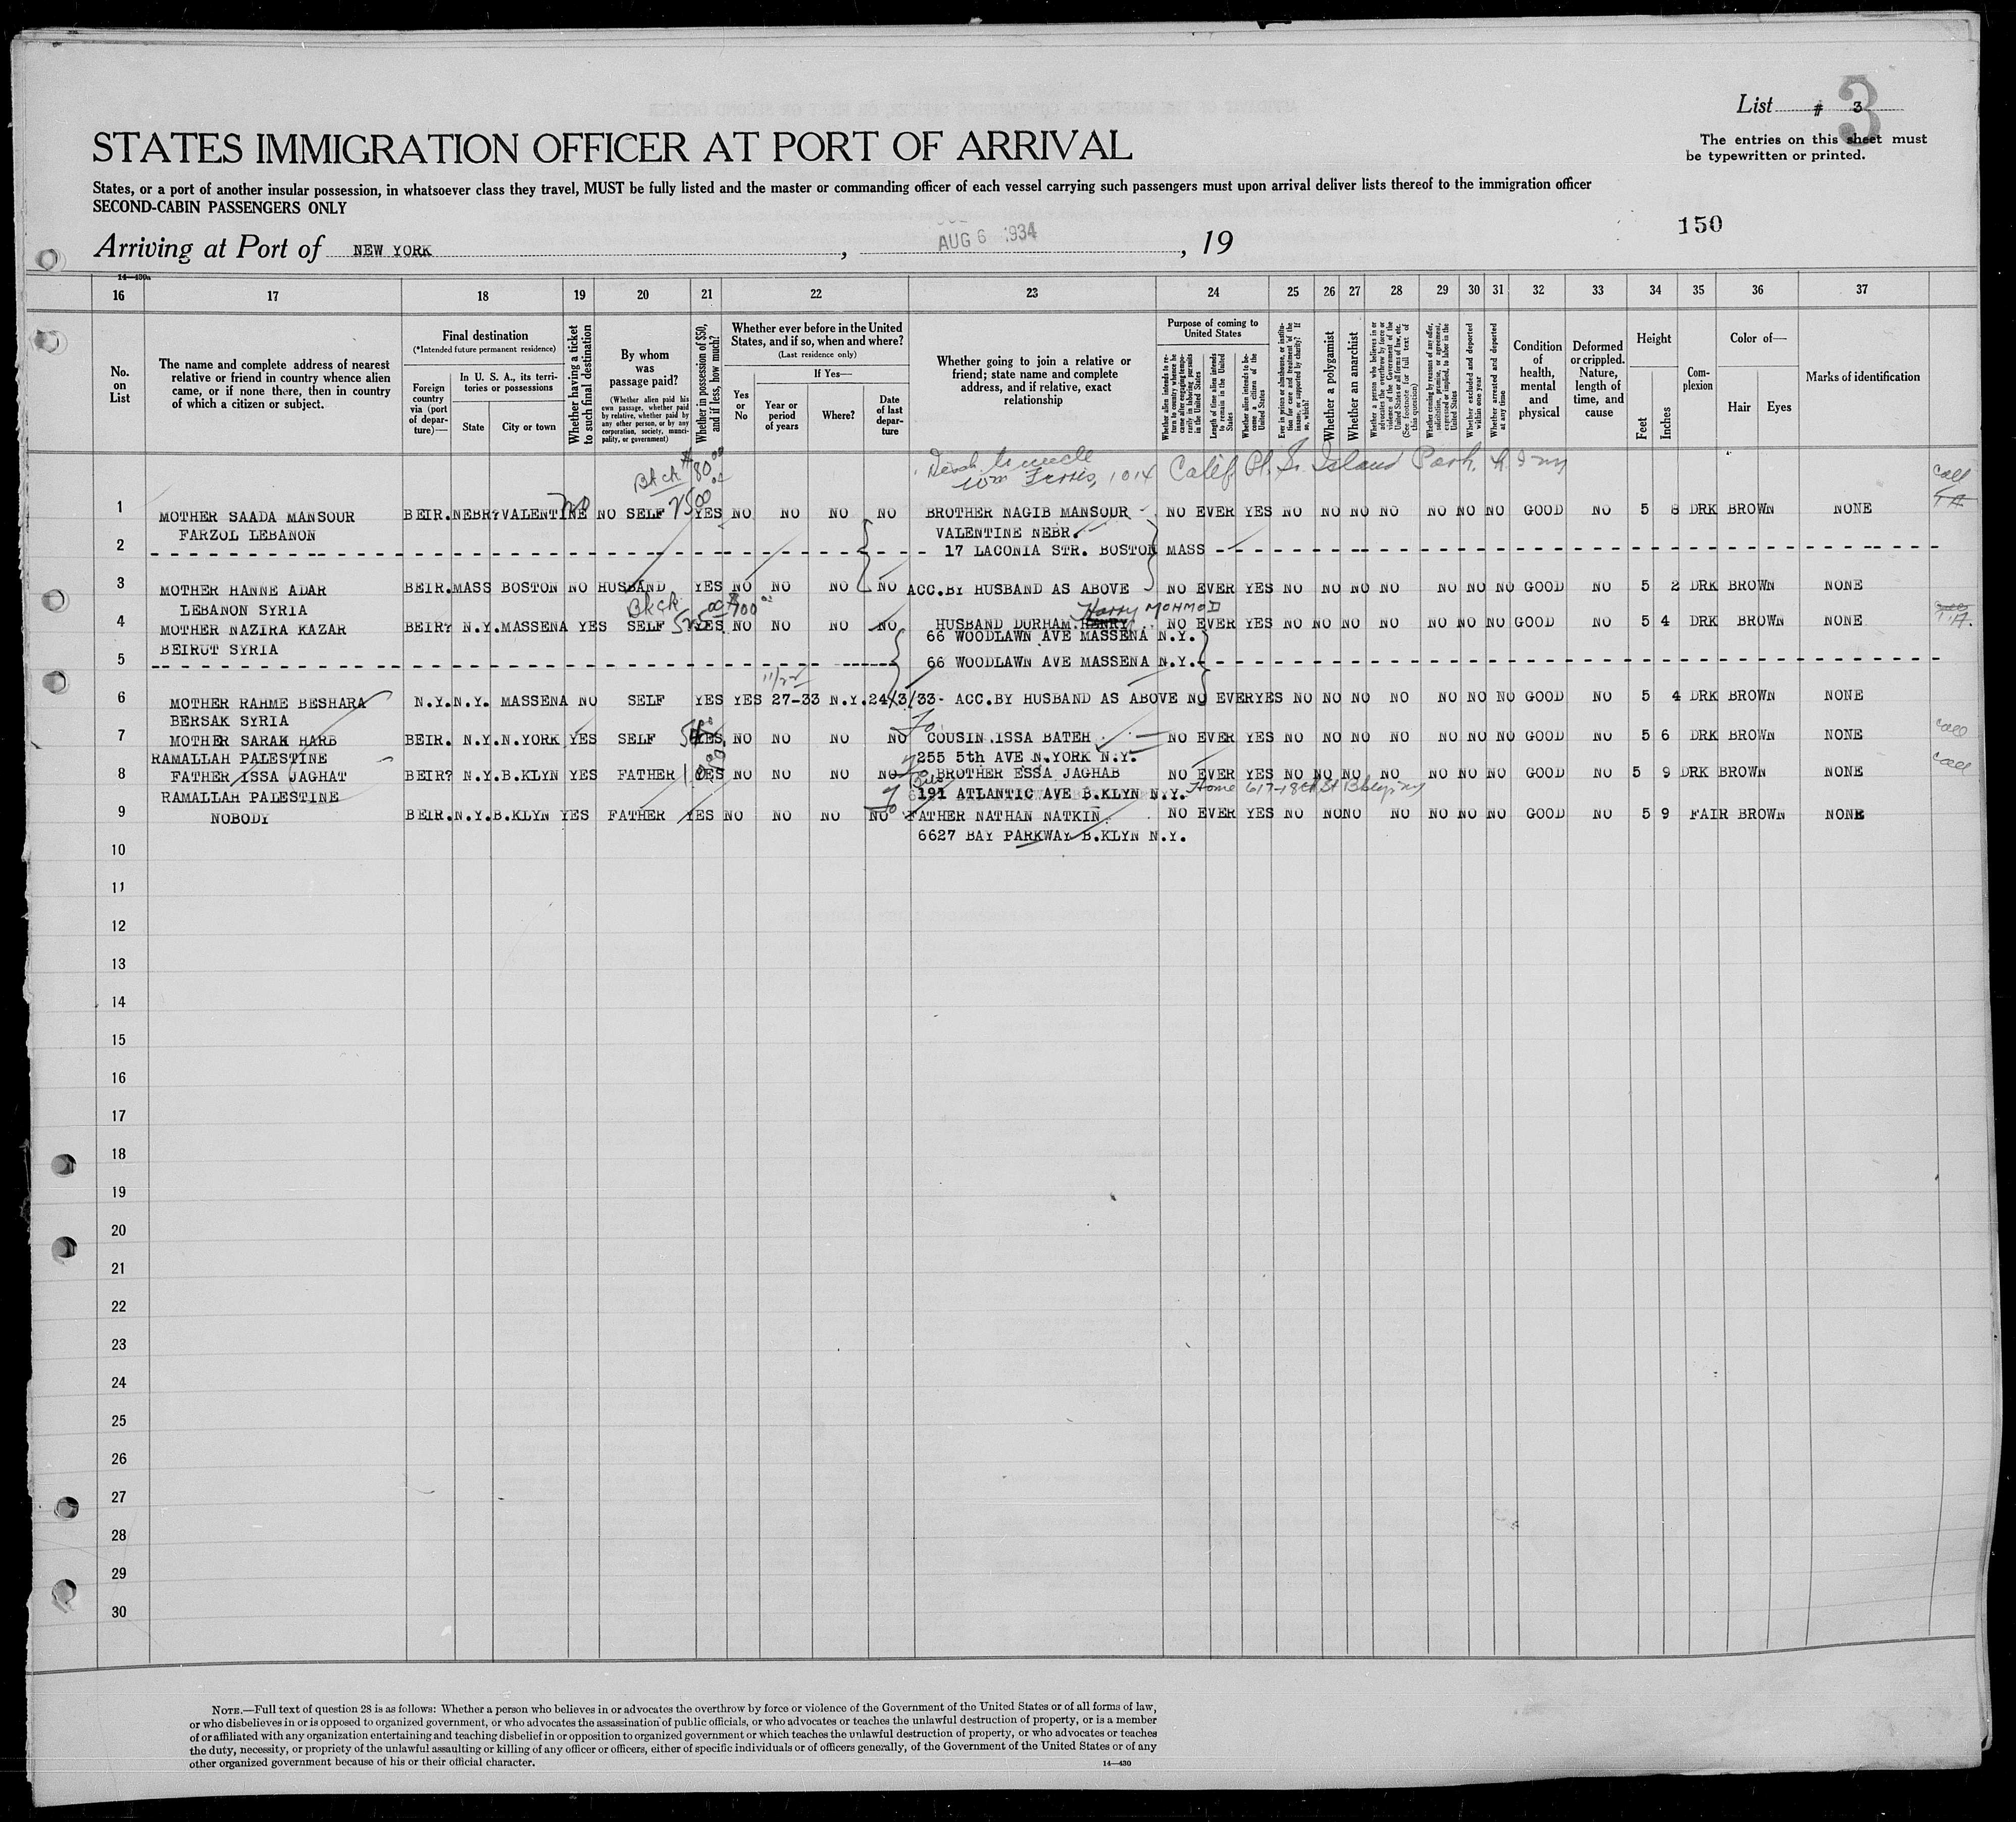 List # 3
3
STATES IMMIGRATION OFFICER AT PORT OF ARRIVAL
The entries on this sheet must
be typewritten or printed.
States, or a port of another insular possession, in whatsoever class they travel, MUST be fully listed and the master or commanding officer of each vessel carrying such passengers must upon arrival deliver lists thereof to the immigration officer
SECOND-CABIN PASSENGERS ONLY
150
Arriving at Port of NEW YORK , AUG 6 1934 , 19
14—430a
16 17 18 19 20 21 22 23 24 25 26 27 28 29 30 31 32 33 34 35 36 37
No. on List
The name and complete address of nearest relative or friend in country whence alien came, or if none there, then in country of which a citizen or subject.
Final destination
(*Intended future permanent residence)
Foreign country via (port of departure)—
In U. S. A., its territories or possessions
State
City or town
Whether having a ticket to such final destination
By whom was passage paid?
(Whether alien paid his own passage, whether paid by relative, whether paid by any other person, or by any corporation, society, municipality, or government)
Whether in possession of $50, and if less, how much?
Whether ever before in the United States, and if so, when and where?
(Last residence only)
Yes or No
If Yes—
Year or period of years
Where?
Date of last departure
Whether going to join a relative or friend; state name and complete address, and if relative, exact relationship
Purpose of coming to United States
Whether alien intends to return to country whence he came after engaging temporarily in laboring pursuits in the United States
Length of time alien intends to remain in the United States
Whether alien intends to become a citizen of the United States
Ever in prison or almshouse, or institution for care and treatment of the insane, or supported by charity? If so, which?
Whether a polygamist
Whether an anarchist
Whether a person who believes in or advocates the overthrow by force or violence of the Government of the United States or all forms of law, etc. (See footnote for full text of this question)
Whether coming by reason of any offer, solicitation, promise, or agreement, expressed or implied, to labor in the United States
Whether excluded and deported within one year
Whether arrested and deported at any time
Condition of health, mental and physical
Deformed or crippled. Nature, length of time, and cause
Height
Feet
Inches
Complexion
Color of—
Hair
Eyes
Marks of identification
Bkck $80.00
Calif Pl. Island Park
call
1 MOTHER SAADA MANSOUR BEIR. NEBR? VALENTINE NO SELF YES NO NO NO NO BROTHER NAGIB MANSOUR NO EVER YES NO NO NO NO NO NO NO GOOD NO 5 8 DRK BROWN NONE
FARZOL LEBANON VALENTINE NEBR.
2 17 LACONIA STR. BOSTON MASS
3 MOTHER HANNE ADAR BEIR. MASS BOSTON NO HUSBAND YES NO NO NO NO ACC.BY HUSBAND AS ABOVE NO EVER YES NO NO NO NO NO NO NO GOOD NO 5 2 DRK BROWN NONE
LEBANON SYRIA Bkck Harry MOHMOD
4 MOTHER NAZIRA KAZAR BEIR? N.Y. MASSENA YES SELF YES NO NO NO NO HUSBAND DURHAM HENRY NO EVER YES NO NO NO NO NO NO NO GOOD NO 5 4 DRK BROWN NONE T.A.
BEIRUT SYRIA 66 WOODLAWN AVE MASSENA N.Y.
5 66 WOODLAWN AVE MASSENA N.Y.
6 MOTHER RAHME BESHARA N.Y. N.Y. MASSENA NO SELF YES YES 27-33 N.Y. 24/3/33- ACC.BY HUSBAND AS ABOVE NO EVERYES NO NO NO NO NO NO NO GOOD NO 5 4 DRK BROWN NONE
BERSAK SYRIA
7 MOTHER SARAH HARB BEIR. N.Y. N.YORK YES SELF YES NO NO NO NO COUSIN.ISSA BATEH NO EVER YES NO NO NO NO NO NO NO GOOD NO 5 6 DRK BROWN NONE call
RAMALLAH PALESTINE 255 5th AVE N.YORK N.Y.
8 FATHER ISSA JAGHAT BEIR? N.Y. B.KLYN YES FATHER YES NO NO NO NO BROTHER ESSA JAGHAB NO EVER YES NO NO NO NO NO NO NO GOOD NO 5 9 DRK BROWN NONE call
RAMALLAH PALESTINE 191 ATLANTIC AVE B.KLYN N.Y. Home 617-18th St
9 NOBODY BEIR. N.Y. B.KLYN YES FATHER YES NO NO NO NO FATHER NATHAN NATKIN NO EVER YES NO NO NO NO NO NO NO GOOD NO 5 9 FAIR BROWN NONE
6627 BAY PARKWAY B.KLYN N.Y.
10
11
12
13
14
15
16
17
18
19
20
21
22
23
24
25
26
27
28
29
30
NOTE.—Full text of question 28 is as follows: Whether a person who believes in or advocates the overthrow by force or violence of the Government of the United States or of all forms of law,
or who disbelieves in or is opposed to organized government, or who advocates the assassination of public officials, or who advocates or teaches the unlawful destruction of property, or is a member
of or affiliated with any organization entertaining and teaching disbelief in or opposition to organized government or which teaches the unlawful destruction of property, or who advocates or teaches
the duty, necessity, or propriety of the unlawful assaulting or killing of any officer or officers, either of specific individuals or of officers generally, of the Government of the United States or of any
other organized government because of his or their official character.
14—430